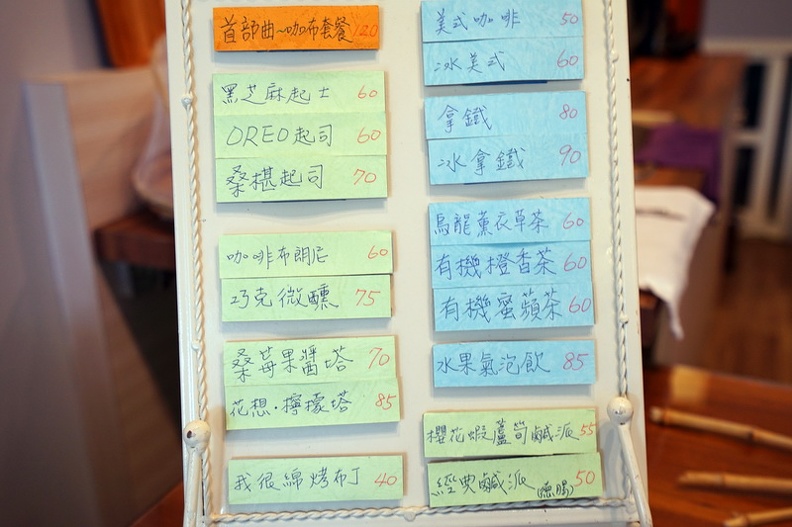 首部曲~咖布套餐 120
黑芝麻起士 60
OREO起司 60
桑椹起司 70
咖啡布朗尼 60
巧克微醺 75
桑莓果醬塔 70
花想·檸檬塔 85
我很綿烤布丁 40
美式咖啡 50
冰美式 60
拿鐵 80
冰拿鐵 90
烏龍薰衣草茶 60
有機橙香茶 60
有機蜜蘋茶 60
水果氣泡飲 85
櫻花蝦蘆筍鹹派 55
經典鹹派(德腸) 50